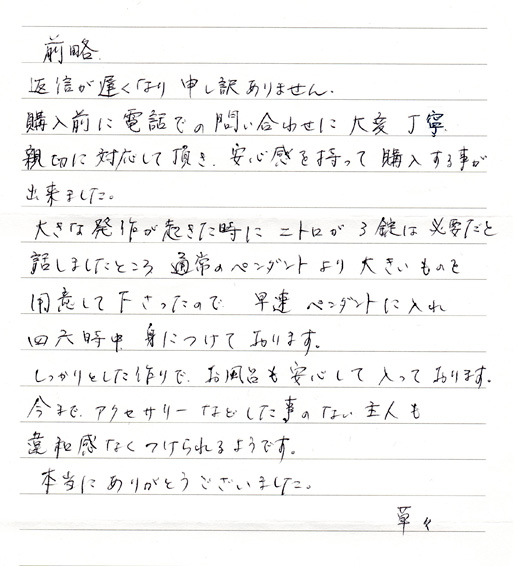 前略
返信が遅くなり 申し訳ありません.
購入前に 電話での 問い合わせに 大変 丁寧
親切に 対応して 頂き、安心感を持って 購入する事が
出来ました。
大きな 発作が起きた時に ニトロが 3錠は 必要だと
話しましたところ 通常のペンダントより 大きいものを
用意して 下さったので 早速 ペンダントに入れ
四六時中 身につけて おります。
しっかりとした作りで、お風呂も 安心して 入って おります。
今まで、アクセサリー などした事のない 主人も
違和感なく つけられるようです。
本当に ありがとうございました。
草々